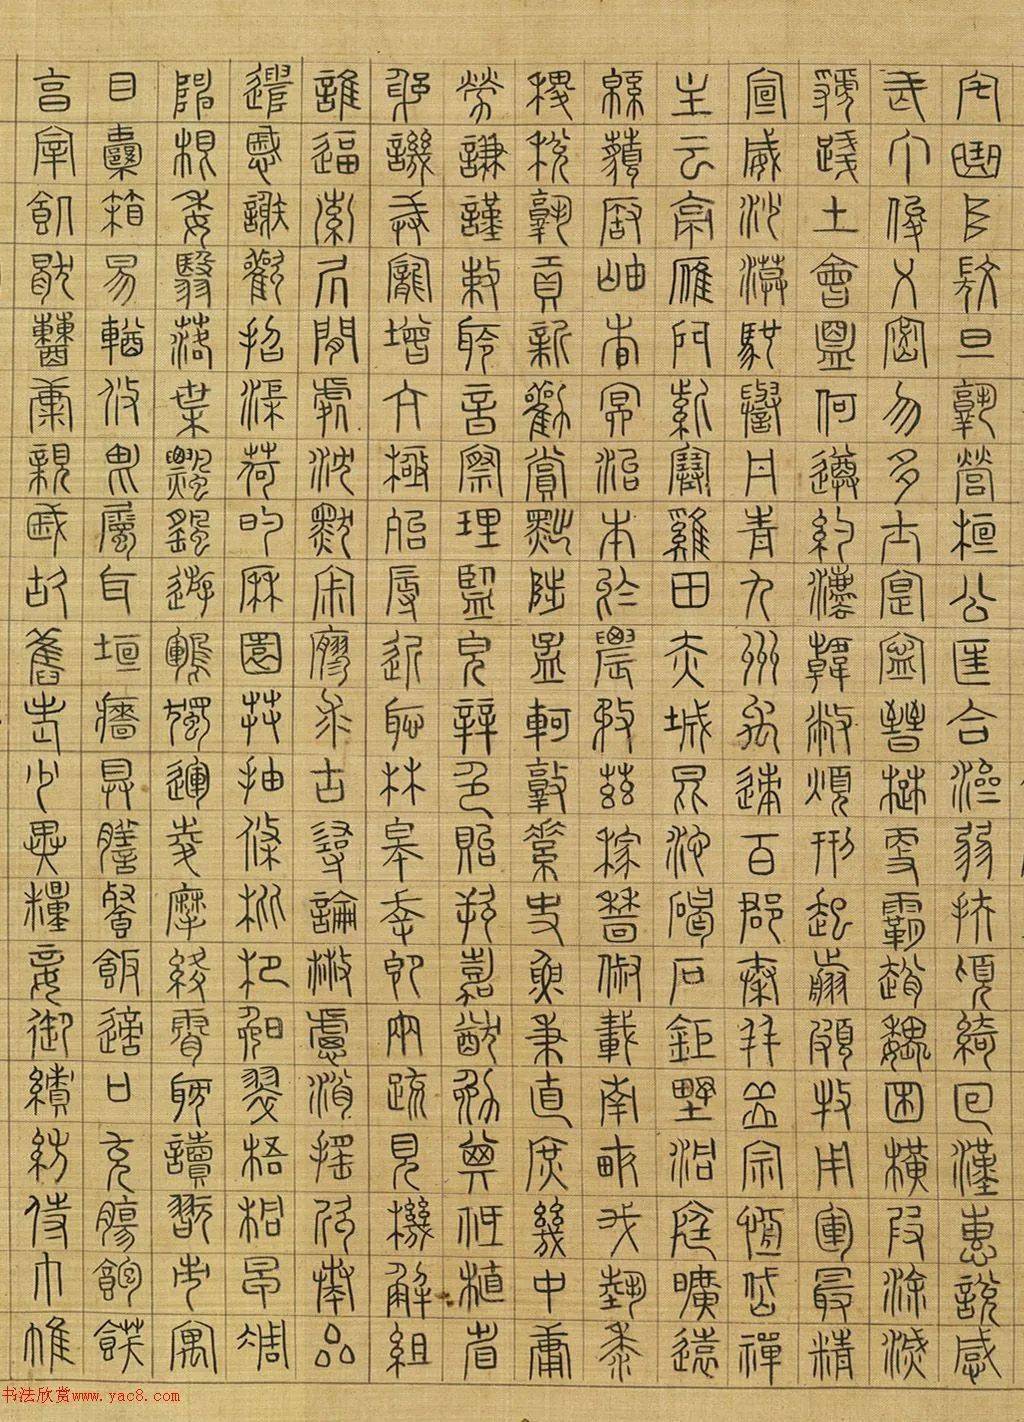 宅曲阜微旦孰營桓公匡合濟弱扶傾綺回漢惠說感
武丁俊乂密勿多士寔寧晉楚更霸趙魏困橫假途滅
虢踐土會盟何遵約法韓弊煩刑起翦頗牧用軍最精
宣威沙漠馳譽丹青九州禹跡百郡秦并嶽宗恆岱禪
主云亭雁門紫塞雞田赤城昆池碣石鉅野洞庭曠遠
緜邈巖岫杳冥治本於農務茲稼穡俶載南畝我藝黍
稷稅熟貢新勸賞黜陟孟軻敦素史魚秉直庶幾中庸
勞謙謹敕聆音察理鑑貌辨色貽厥嘉猷勉其祗植省
躬譏誡寵增抗極殆辱近恥林皋幸即兩疏見機解組
誰逼索居閒處沈默寂寥求古尋論散慮逍遙欣奏累
遣慼謝歡招渠荷的歷園莽抽條枇杷晚翠梧桐早凋
陳根委翳落葉飄颻遊鵾獨運凌摩絳霄耽讀翫市寓
目囊箱易輶攸畏屬耳垣牆具膳餐飯適口充腸飽飫
享宰飢厭糟糠親戚故舊老少異糧妾御績紡侍巾帷
书法欣赏www.yac8.com